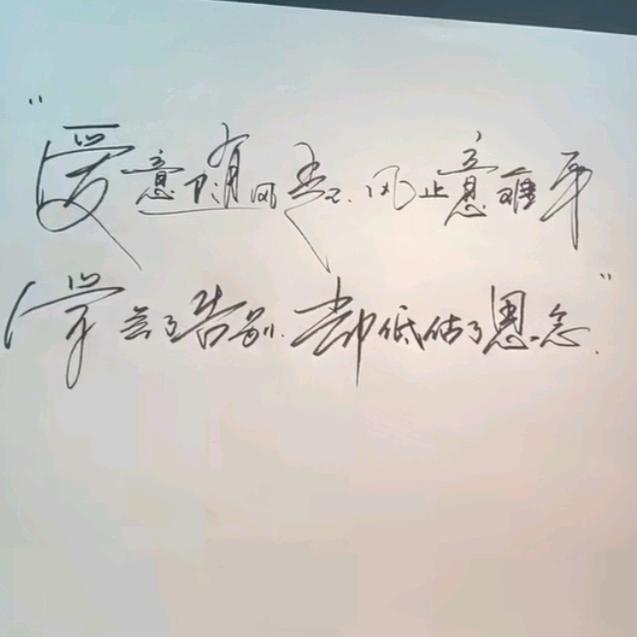 "爱意随风起.风止意难平
学会了告别.却低估了思念."